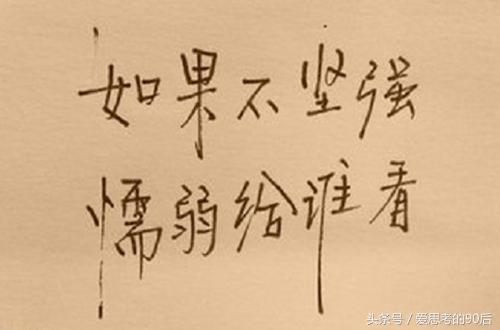 如果不坚强
懦弱给谁看
头条号／爱思考的90后